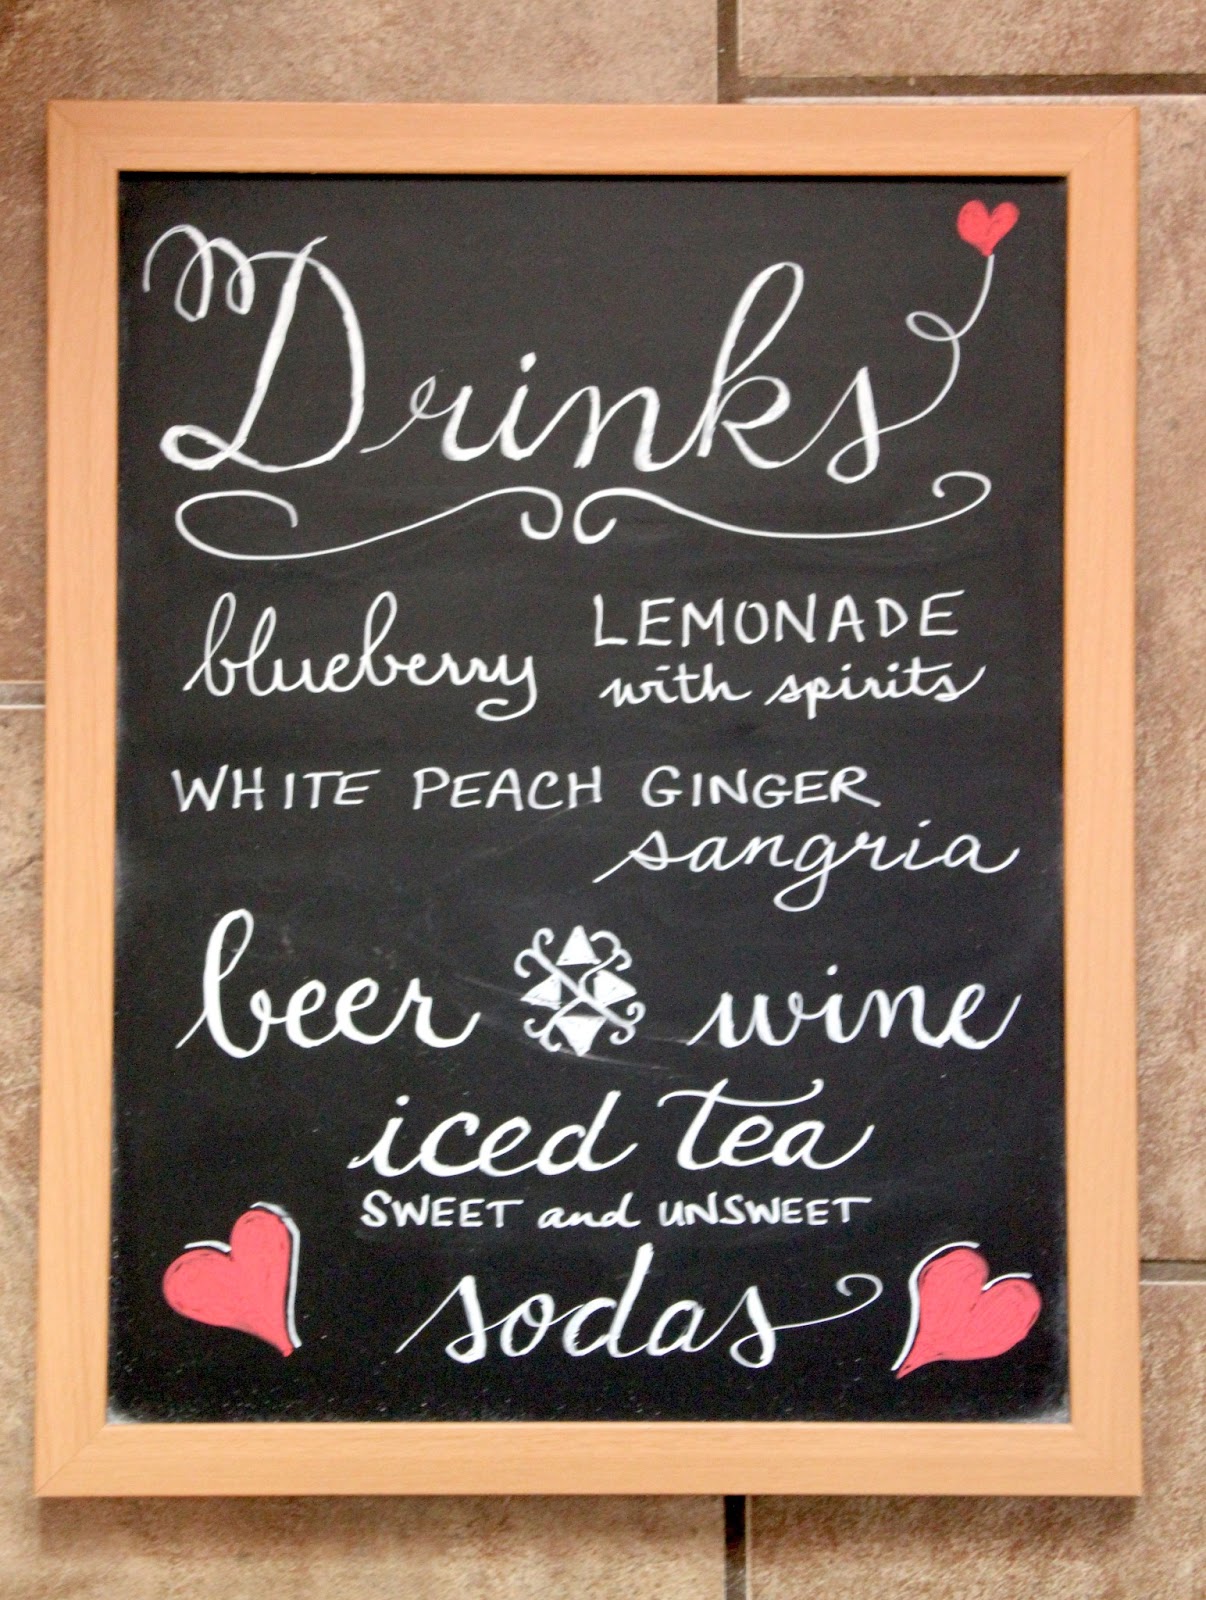 Drinks
blueberry LEMONADE
with spirits
WHITE PEACH GINGER
sangria
beer wine
iced tea
SWEET and UNSWEET
sodas